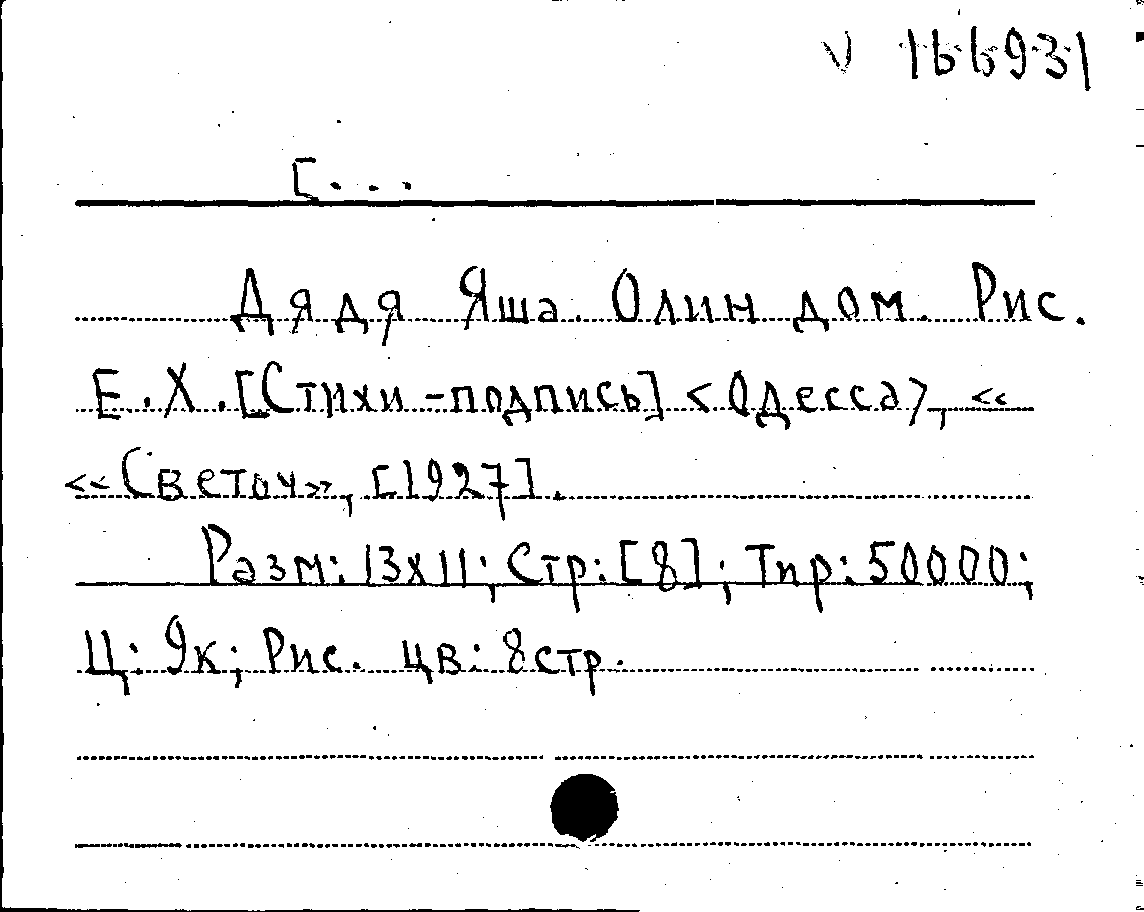 V 166931
[...
Дядя Яша. Олин дом. Рис.
Е.Х. [Стихи-подпись] <Одесса>, «
«Светоч», [1927].
Разм: 13x11; Стр: [8]; Тир: 50000;
Ц: 9к; Рис. цв: 8стр.